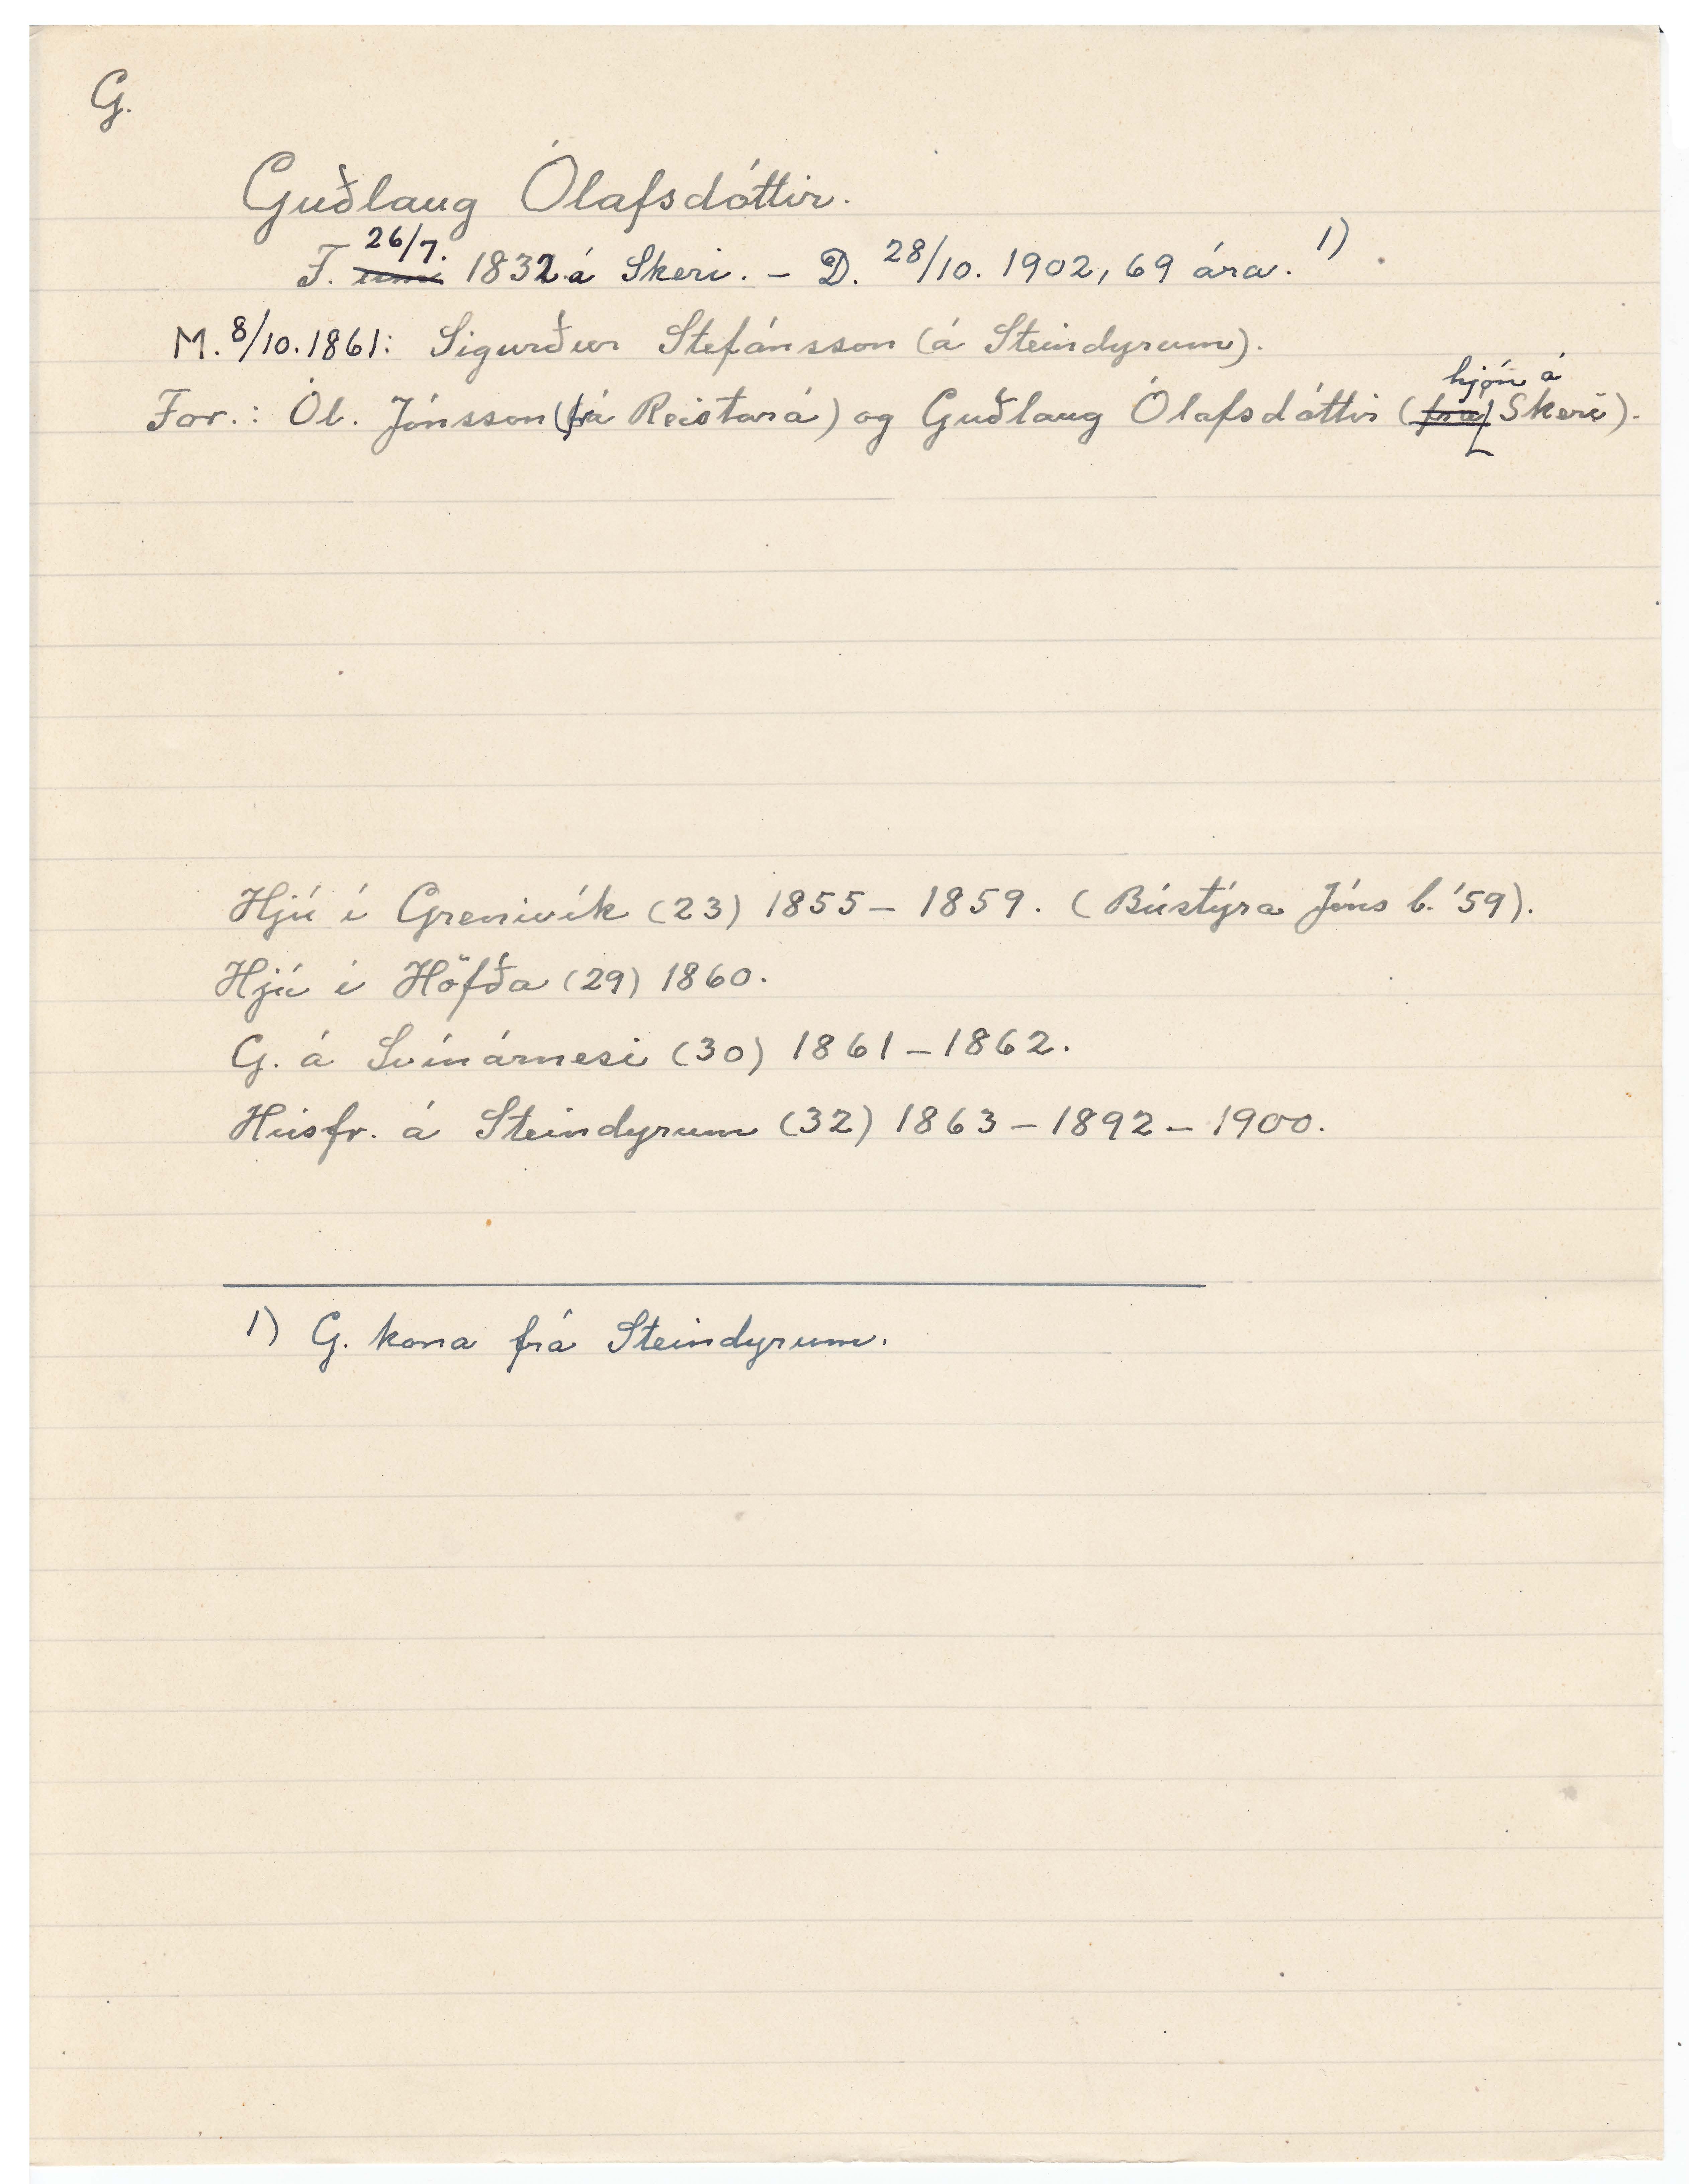 G.
Guðlaug Ólafsdóttir.
F. 26/7. 1832 á Skeri. – D. 28/10. 1902, 69 ára. 1)
M. 8/10. 1861: Sigurður Stefánsson (á Steindyrum).
For.: Ól. Jónsson (frá Reistará) og Guðlaug Ólafsdóttir (hjón á Skeri).
Hjú í Grenivík (23) 1855 – 1859. (Bústýra Jóns b. '59).
Hjú í Höfða (29) 1860.
G. á Svínárnesi (30) 1861 – 1862.
Húsfr. á Steindyrum (32) 1863 – 1892 – 1900.
1) G. kona frá Steindyrum.